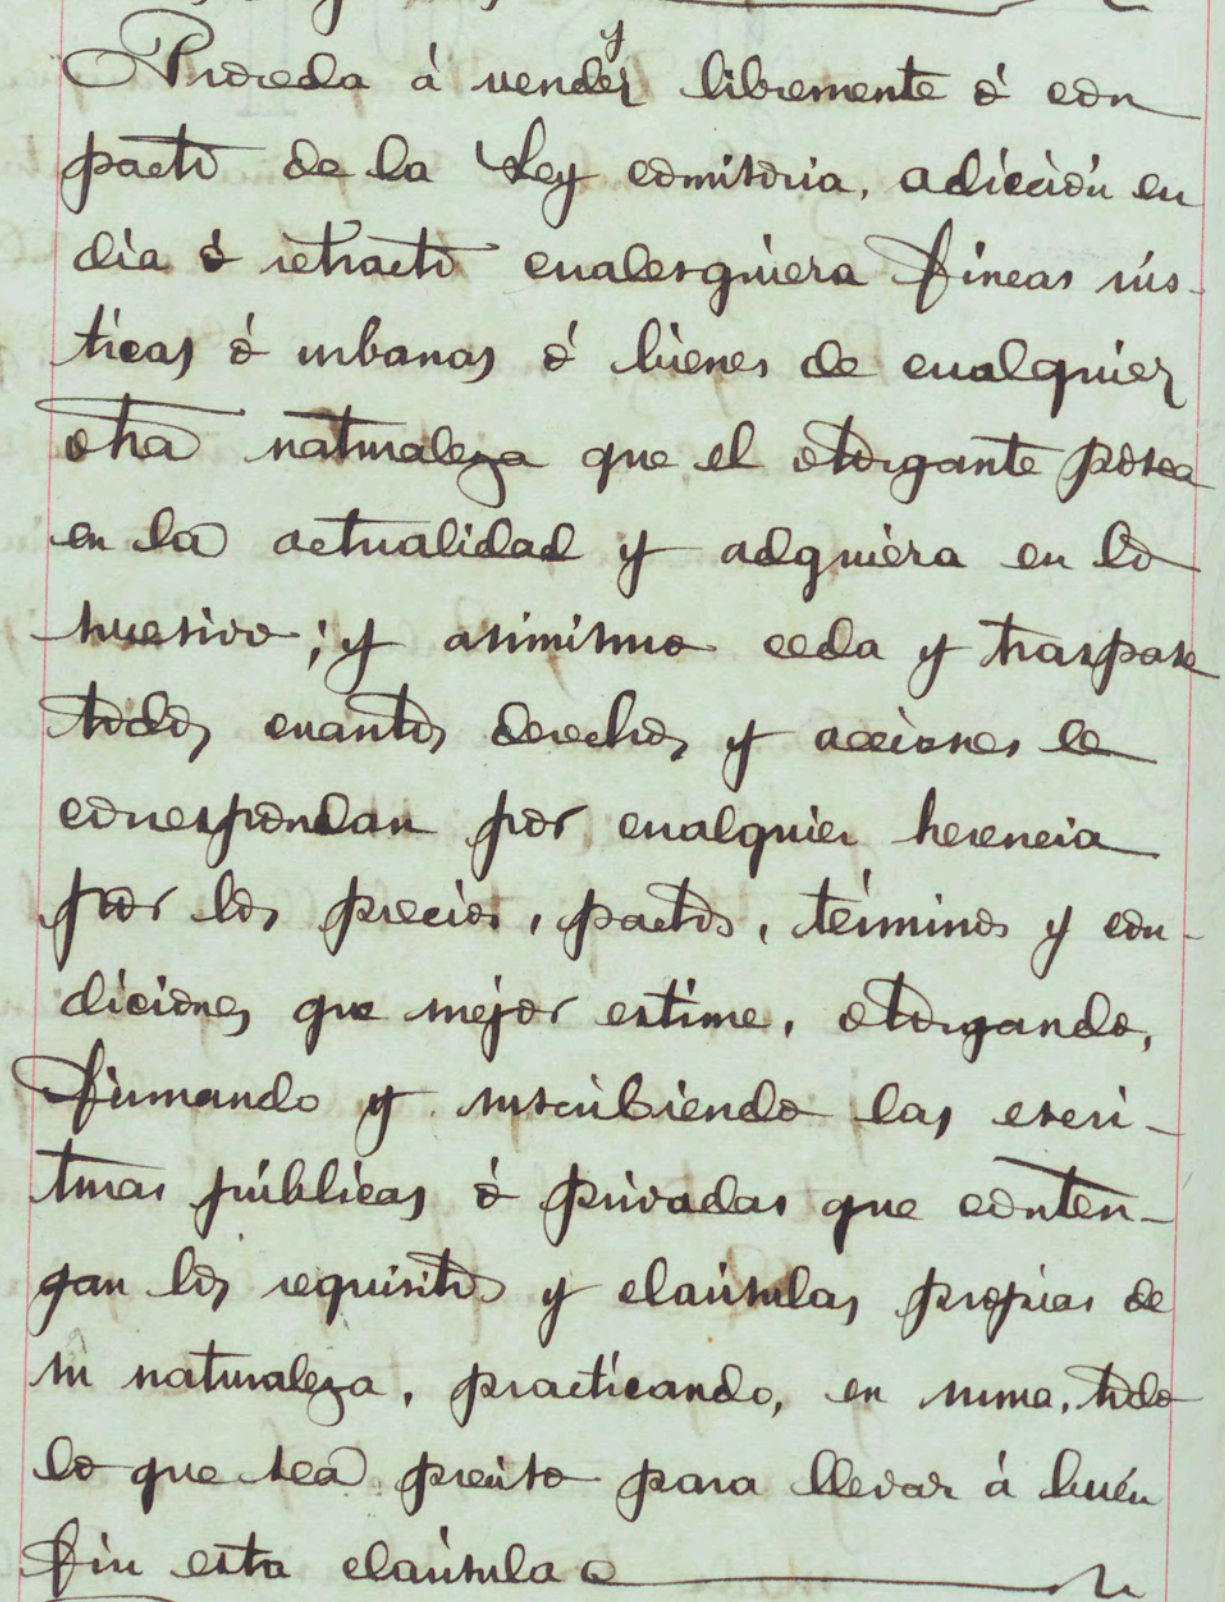 Proceda á vender libremente ó con
pacto de la Ley comisoria, adición en
día ó retracto cualesquiera fincas rús-
ticas ó urbanas ó bienes de cualquier
otra naturaleza que el otorgante posea
en la actualidad y adquiera en lo
sucesivo; y asimismo ceda y traspase
todos cuantos derechos y acciones le
correspondan por cualquier herencia
por los precios, pactos, términos y con-
diciones que mejor estime, otorgando,
firmando y suscribiendo las escri-
turas públicas ó privadas que conten-
gan los requisitos y claúsulas propias de
su naturaleza, practicando, en suma, todo
lo que sea preciso para llevar á buén
fin esta claúsula